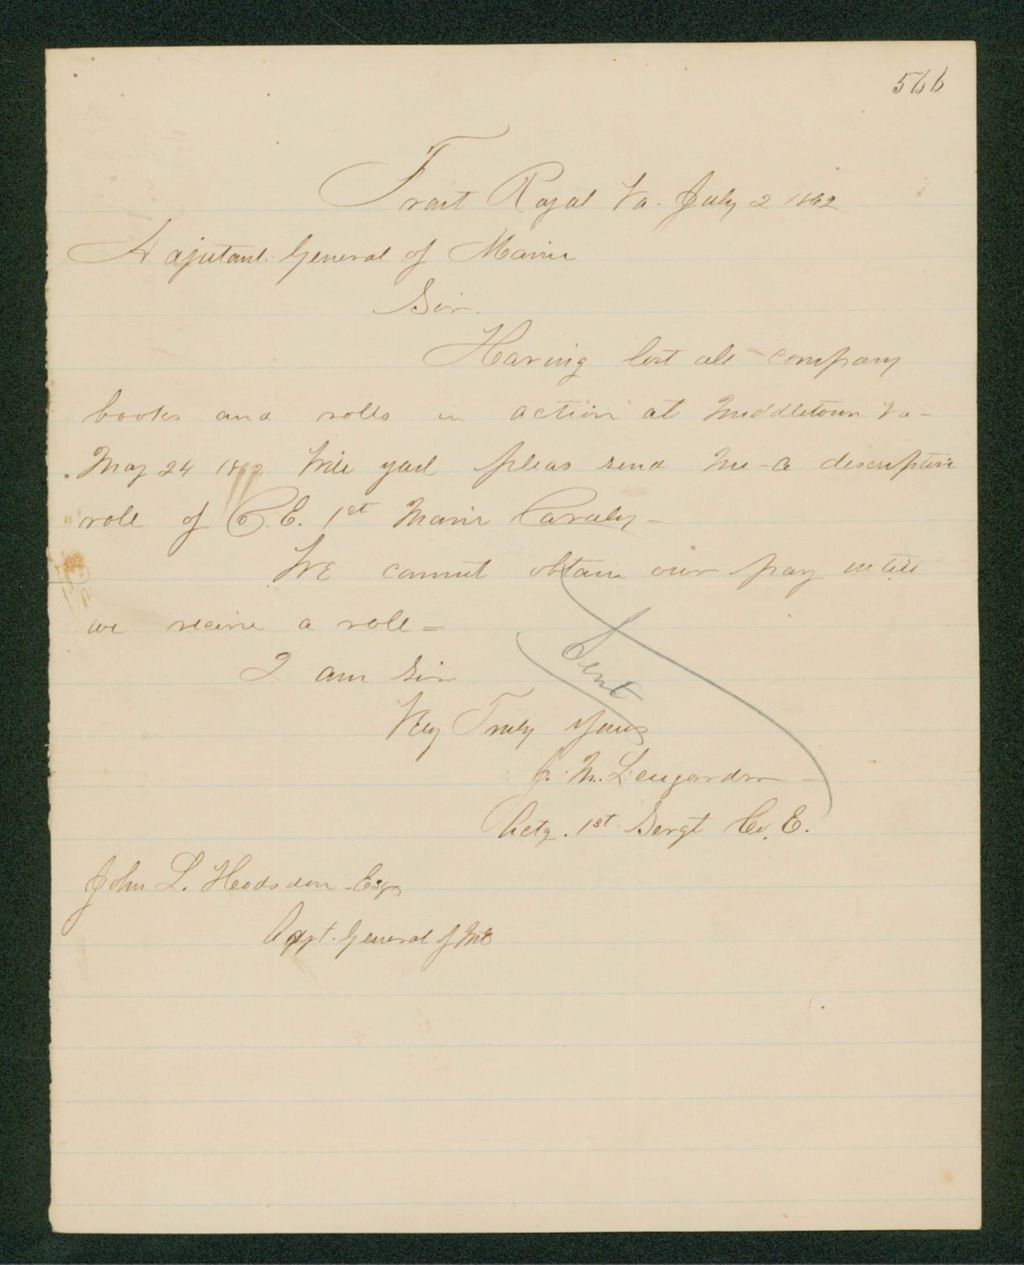 566
Front Royal Va. July 2 1862
Adjutant General of Maine
Sir.
Having lost all company
books and rolls in action at Middletown Va-
May 24 1862 Will you pleas send me a descriptive
role of Co. E. 1st Maine Cavalry-
We cannot obtain our pay until
we receive a role-
I am Sir
Very Truly Yours
Sent
J. M.
Actg. 1st Sergt Co. E.
John L. Hodsdon Esqr
Adjt. General of Me